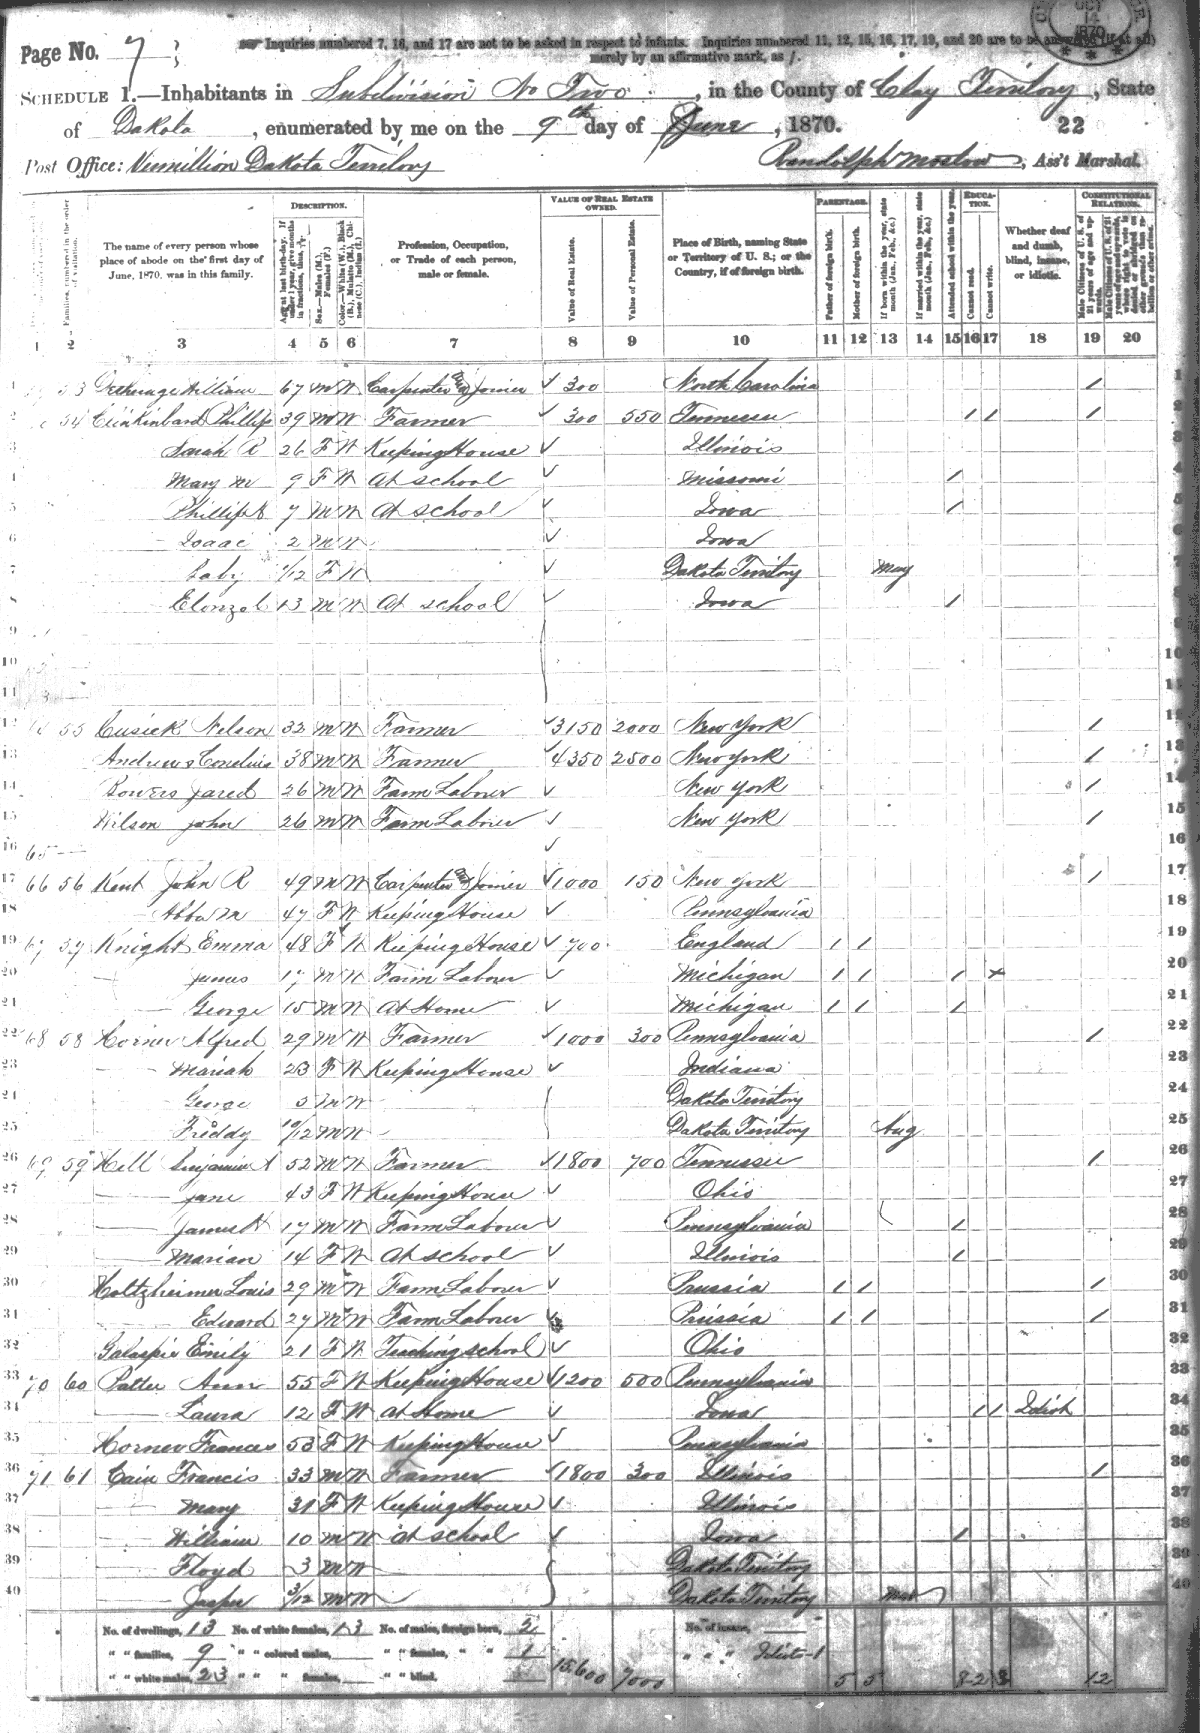 Page No. 7
Inquiries numbered 7, 16, and 17 are not to be asked in respect to infants. Inquiries numbered 11, 12, 15, 16, 17, 19, and 20 are to be answered (if at all)
merely by an affirmative mark, as /.
OCT 14 1870
SCHEDULE 1.—Inhabitants in Subdivision No Two, in the County of Clay Territory, State
of Dakota, enumerated by me on the 9th day of June, 1870. 22
Post Office: Vermillion Dakota Territory Randolph, Ass't Marshal.
DESCRIPTION. VALUE OF REAL ESTATE OWNED. PARENTAGE. EDUCATION. CONSTITUTIONAL RELATIONS.
Families, numbered in the order of visitation.
The name of every person whose place of abode on the first day of June, 1870, was in this family.
Age at last birth-day. If under 1 year, give months in fractions, thus,
Sex.—Males (M.), Females (F.)
Color.—White (W.), Black (B.), Mulatto (M.), Chinese (C.), Indian (I.)
Profession, Occupation, or Trade of each person, male or female.
Value of Real Estate.
Value of Personal Estate.
Place of Birth, naming State or Territory of U. S.; or the Country, if of foreign birth.
Father of foreign birth.
Mother of foreign birth.
If born within the year, state month (Jan., Feb., &c.)
If married within the year, state month (Jan., Feb., &c.)
Attended school within the year.
Cannot read.
Cannot write.
Whether deaf and dumb, blind, insane, or idiotic.
Male Citizens of U. S. of 21 years of age and upwards.
Male Citizens of U. S. of 21 years of age and upwards, whose right to vote is denied or abridged on other grounds than rebellion or other crime.
1 2 3 4 5 6 7 8 9 10 11 12 13 14 15 16 17 18 19 20
1 53 William 67 M W Carpenter and Joiner 300 North Carolina / 1
2 54 Clinkinbard Phillip 39 M W Farmer 300 550 Tennessee / / / 2
3 Sarah R 26 F W Keeping House Illinois 3
4 Mary M 9 F W At school Missouri / 4
5 Phillip 7 M W At school Iowa / 5
6 — Isaac 2 M W Iowa 6
7 — Baby 1/12 F W Dakota Territory May 7
8 13 M W At school Iowa / 8
9 9
10 10
11 11
12 55 Cusick Nelson 32 M W Farmer 3150 2000 New York / 12
13 Andrews Cornelius 38 M W Farmer 4350 2500 New York / 13
14 Bowers Jared 26 M W Farm Laborer New York / 14
15 Wilson John 26 M W Farm Laborer New York / 15
16 65 — 16
17 66 56 Kent John R 49 M W Carpenter and Joiner 1000 150 New York / 17
18 — Abba M 47 F W Keeping House Pennsylvania 18
19 67 57 Knight Emma 48 F W Keeping House 700 England / / 19
20 — James 17 M W Farm Laborer Michigan / / / + 20
21 — George 15 M W At Home Michigan / / / 21
22 68 58 Horner Alfred 29 M W Farmer 1000 300 Pennsylvania / 22
23 — Mariah 23 F W Keeping House Indiana 23
24 — George 3 M W Dakota Territory 24
25 — Freddy 10/12 M W Dakota Territory Aug 25
26 69 59 Hill Benjamin A 52 M W Farmer 1800 700 Tennessee / 26
27 — Jane 43 F W Keeping House Ohio 27
28 — James H 17 M W Farm Laborer Pennsylvania / 28
29 — Marian 14 F W At school Illinois / 29
30 Holtzheimer Louis 29 M W Farm Laborer Prussia / / / 30
31 Edward 27 M W Farm Laborer Prussia / / / 31
32 Galaspie Emily 21 F W Teaching school Ohio 32
33 70 60 Potter Ann 55 F W Keeping House 1200 500 Pennsylvania 33
34 — Laura 12 F W At Home Iowa / / Idiot 34
35 Horner Frances 53 F W Keeping House Pennsylvania 35
36 71 61 Cain Francis 33 M W Farmer 1800 300 Illinois / 36
37 — Mary 31 F W Keeping House Illinois 37
38 — William 10 M W At school Iowa / 38
39 — Floyd 3 M W Dakota Territory 39
40 — Jasper 3/12 M W Dakota Territory Mar 40
No. of dwellings, 13 No. of white females, 13 No. of males, foreign born, 2 No. of insane,
" " families, 9 " " colored males, " " females, " " 1 " " " Idiots—1
" " white males, 23 " " " females, " " blind, 15,600 7000 5 5 8 2 3 12